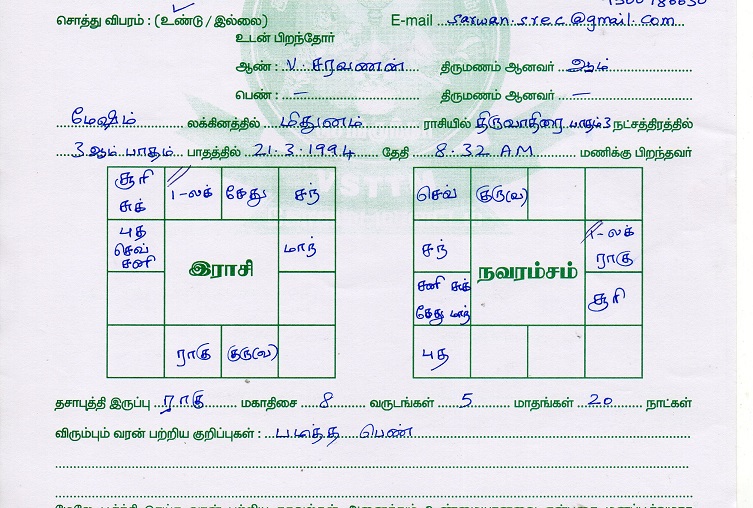 சொத்து விபரம் : (உண்டு / இல்லை) E-mail sarwan.srec@gmail.com
உடன் பிறந்தோர்
ஆண் : V. சரவணன் திருமணம் ஆனவர் ஆம்
பெண் : – திருமணம் ஆனவர் –
மேஷம் லக்கினத்தில் மிதுனம் ராசியில் திருவாதிரை பாதம் 3 நட்சத்திரத்தில்
3 ஆம் பாதம் பாதத்தில் 21.3.1994 தேதி 8.32 AM மணிக்கு பிறந்தவர்
சூரி சுக் 1-லக் கேது சந்
புத செவ் சனி மாந்
இராசி
ராகு குரு(வ)
செவ் குரு(வ)
சந் 1-லக் ராகு
நவரம்சம்
சனி சுக் கேது மாந் சூரி
புத
தசாபுத்தி இருப்பு ராகு மகாதிசை 8 வருடங்கள் 5 மாதங்கள் 20 நாட்கள்
விரும்பும் வரன் பற்றிய குறிப்புகள் : படித்த பெண்